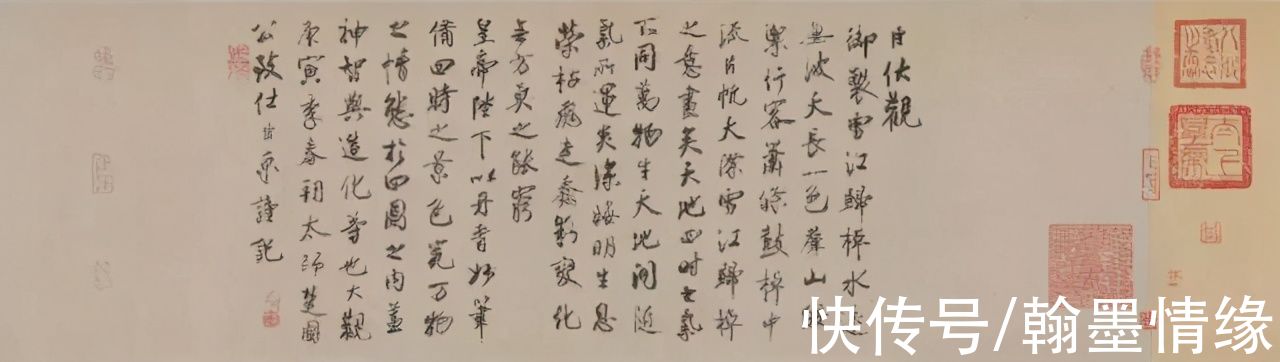 臣伏觀
御製雪江歸棹水遠
無波天長一色羣山皎
潔行客蕭條鼓棹中
流片帆天際雪江歸棹
之意盡矣天地四時之氣
不同萬物生天地間隨
氣所運炎涼晦明生息
榮枯飛走蠢動變化
無方莫之能窮
皇帝陛下以丹青妙筆
備四時之景色究萬物
之情態於四圖之內蓋
神智與造化等也大觀
庚寅季春朔太師楚國
公致仕臣京謹記
快传号/翰墨情缘